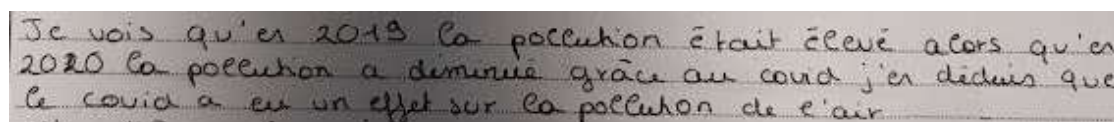 Je vois qu'en 2019 la pollution était élevé alors qu'en
2020 la pollution a diminué grâce au covid j'en déduis que
le covid a eu un effet sur la pollution de l'air